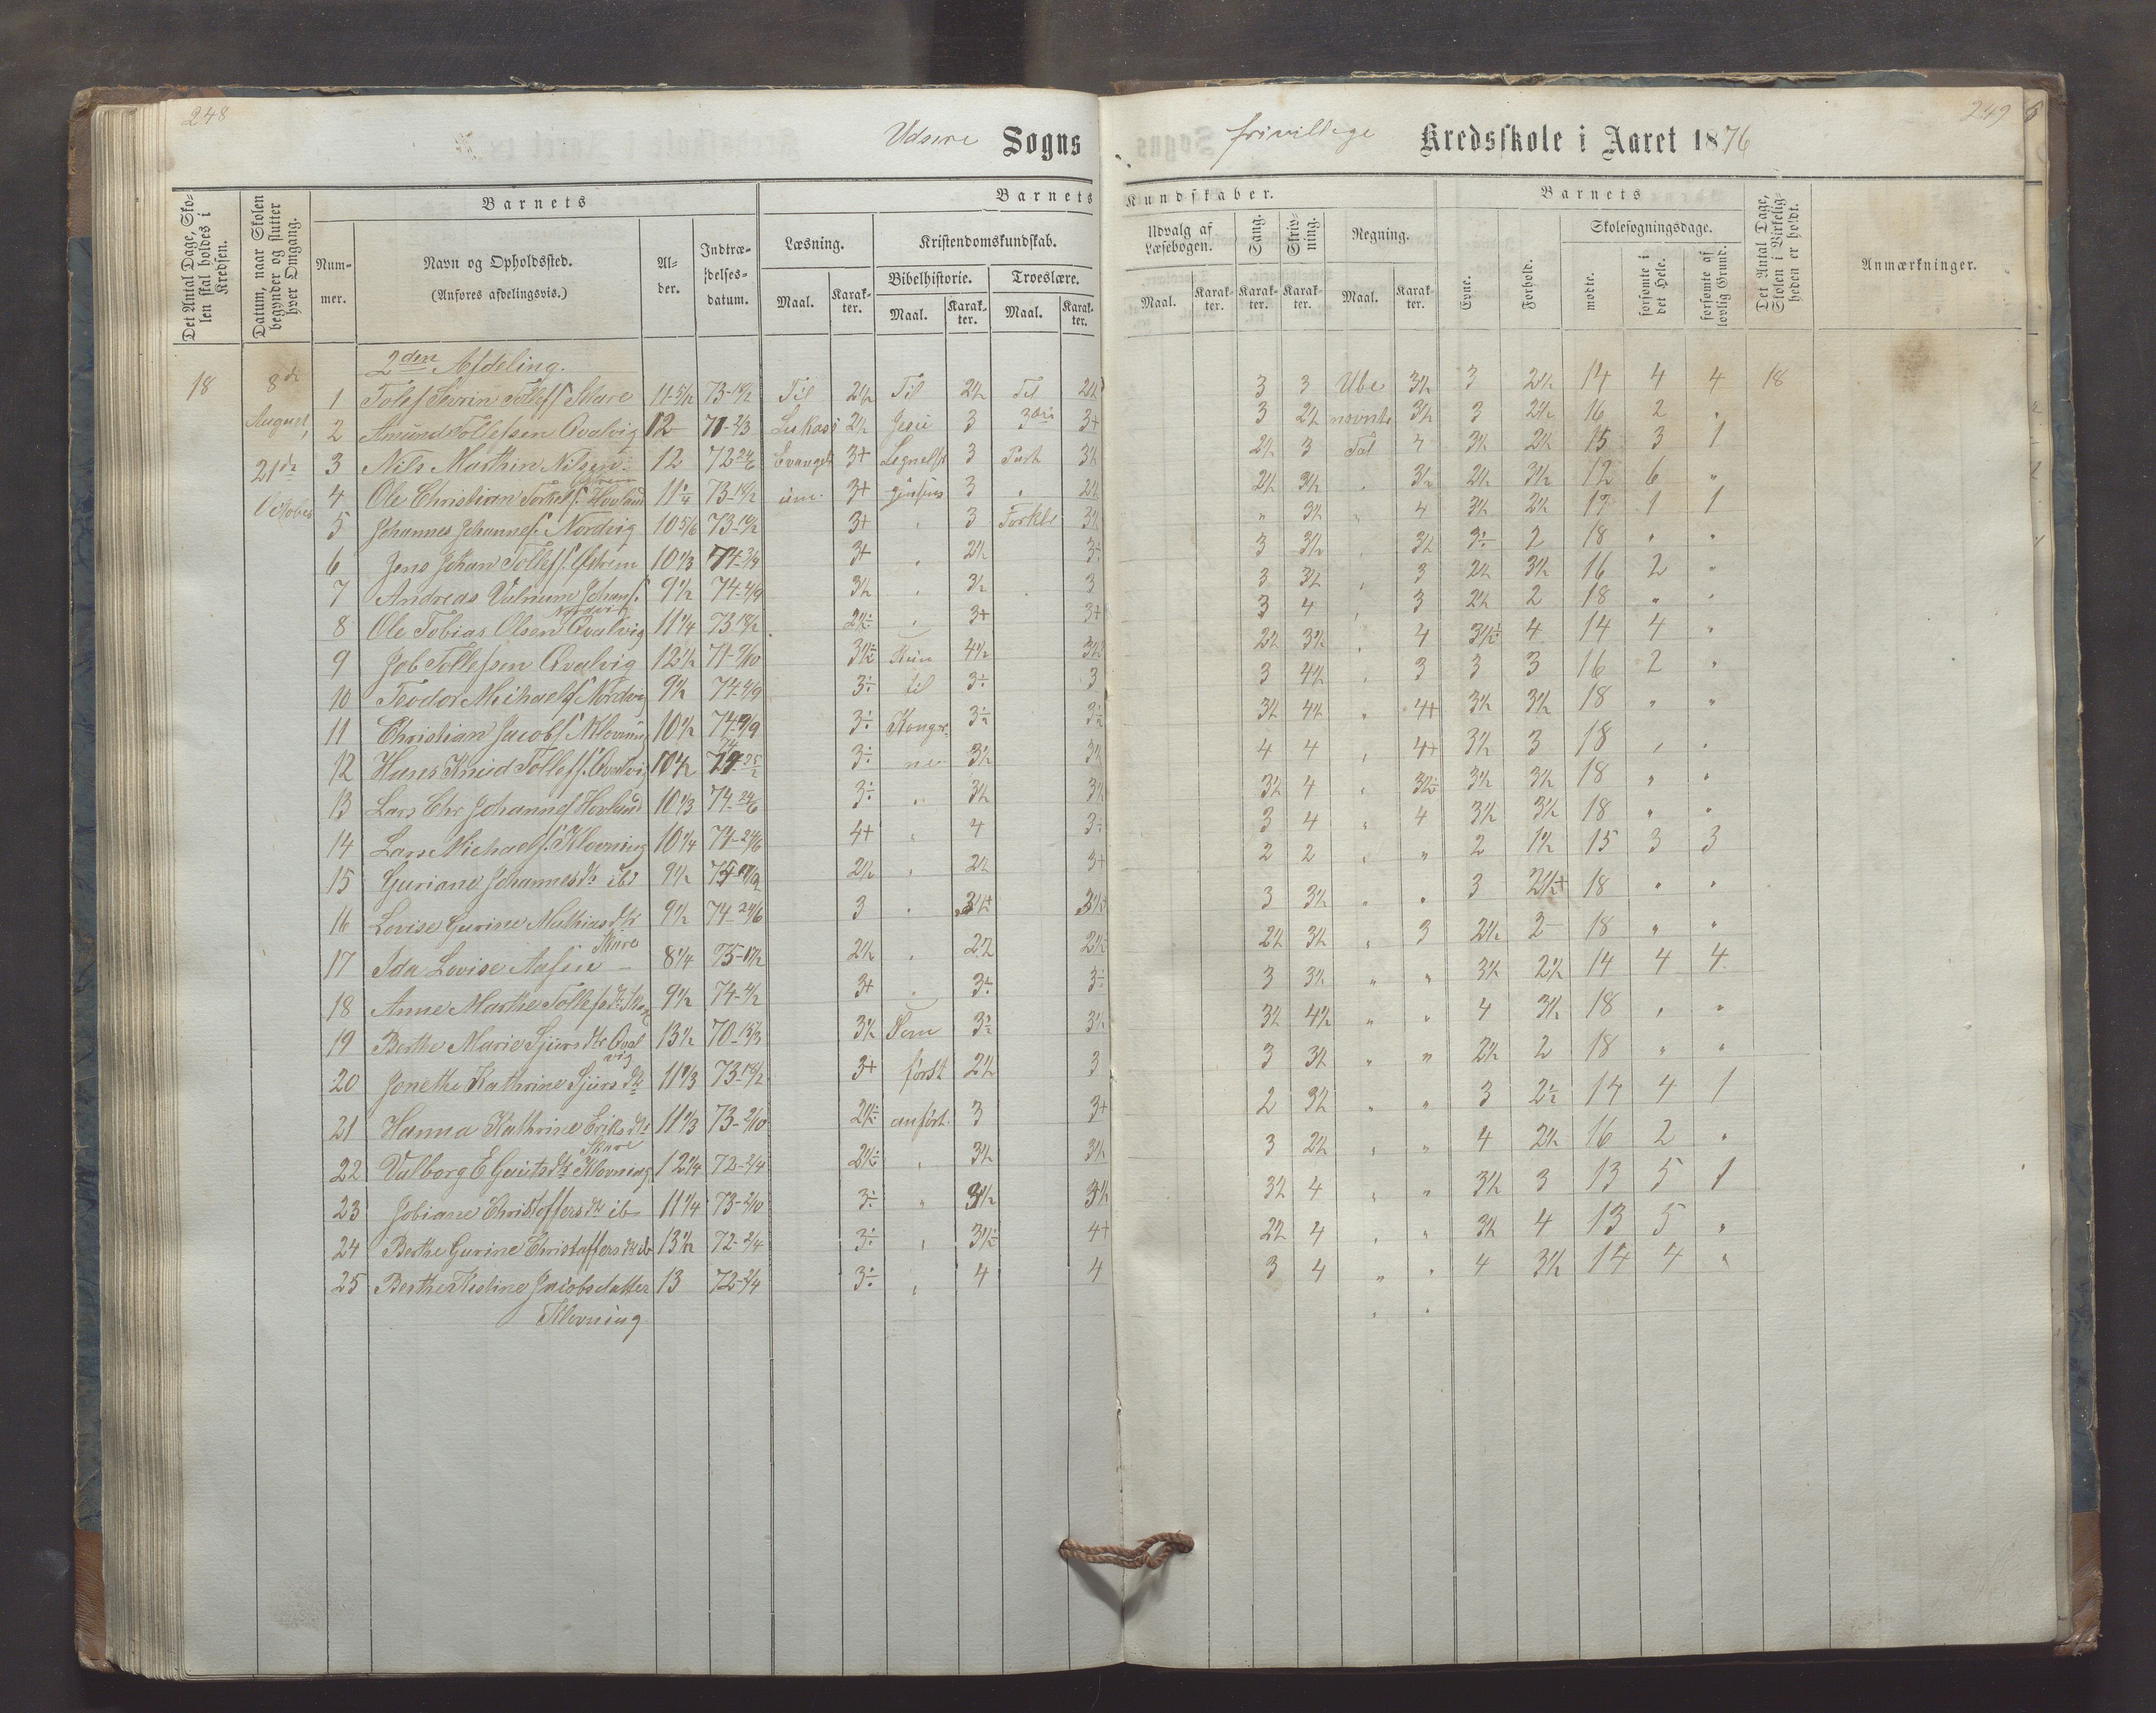 248
Udsire Sogns
Det Antal Dage, Skolen skal holdes i Kredsen.
Datum, naar Skolen begynder og slutter hver Omgang.
Barnets
Barnets
Nummer.
Navn og Opholdssted.
(Anføres afdelingsvis.)
Alder.
Indtrædelsesdatum.
Læsning.
Kristendomskundskab.
Bibelhistorie.
Troeslære.
Maal.
Karakter.
Maal.
Karakter.
Maal.
Karakter.
2den Afdeling.
18 8de 1 Tolef Sevrin Tollefs. Skare 11 5/12 73-18/2 Til 2½ Til 2½ Til 2½
August, 2 Amund Tollefsen Qvalvig 12 71-2/3 Lukas 2½ Jesu 3 3die 3+
21de 3 Nils Marthin Nilsen 12 72 24/6 Evangeli 3+ 3 Part 3½
October 4 Ole Christian Torkels. Hovland 11 1/4 73-18/2 um. 3+ 3 " 2½
5 Johannes Johannes. Nordvig 10 5/6 73-18/2 3+ " 3 Forkla 3½
6 Jens Johan Tollefs. Østrem 10 1/3 74 3+ " 2½ 3÷
7 Andreas Valnum Johans. 9½ 74-4/9 3½ " 3½ 3
Nordvig
8 Ole Tobias Olsen Qvalvig 11¼ 73 18/2 2½÷ " 3+ 3+
9 Job Tollefsen Qvalvig 12½ 71-9/10 3½÷ Kun 4½ 3½
10 Teodor Michaels. Nordvig 9½ 74-4/9 3÷ til 3÷ 3
11 Christian Jacobs. Klovning 10½ 74-4/9 3÷ Konger 3÷ 3÷
12 Hans Knud Tollefs. Qvalvig 10½ 74 3÷ ne 3½ 3½
13 Lars Chr Johannes Hovland 10 1/3 74-24/6 3÷ " 3½ 3½
14 Lars Michaels. Klovning 10¼ 74-24/6 4+ " 4 3÷
15 Guriane Johannesdtr ibd 9½ 2½ " 2½ 3+
16 Lovise Gurine Mathiasdtr 9½ 74-24/6 3 " 3½+ 3½+
Skare
17 Ida Lovise Aasen 8¼ 75 2½ " 2½ 2½
18 Anne Marthe Tollefsdtr. Skare 9½ 74 3+ " 3÷ 3÷
19 Berthe Marie Sjursdtr Qvalvig 13½ 70 3½ Som 3÷ 3½
20 Jonethe Kathrine Sjursdtr 11 1/3 73-18/2 3+ først 2½ 3
21 Hanna Kathrine Eriksdtr 11 1/3 73-2/10 2½÷ anført. 3 3+
Skare
22 Valborg E Gautsdtr Klovning 12¼ 72-2/4 2½÷ " 3½ 3½
23 Jobiane Christoffersdtr ib 11¼ 73-2/10 3÷ " 3½ 3½
24 Berthe Gurine Christoffersdtr ib 13½ 72-2/4 3÷ " 3½÷ 4+
25 Berthe Kristine Jacobsdatter 13 72-2/4 3÷ " 4 4
Klovning
249
frivillige Kredsskole i Aaret 1876
Kundskaber.
Barnets
Udvalg af Læsebogen.
Sang.
Skrivning.
Regning.
Evne.
Forhold.
Skolesøgningsdage.
Det Antal Dage, Skolen i Virkeligheden er holdt.
Anmærkninger.
Maal.
Karakter.
Karakter.
Karakter.
Maal.
Karakter.
mødte.
forsømte i det Hele.
forsømte af lovlig Grund.
3 3 Ube 3½ 3 2½ 14 4 4 18
3 2½ nævnte 3½ 3 2½ 16 2 "
2½ 3 Tal 4 3½ 2½ 15 3 1
2½ 3½ " 3½ 2½ 3½ 12 6 "
" 3½ " 4 3½ 2½ 17 1 1
3 3½ " 3½ 3÷ 2 18 " "
3 3½ " 3 2½ 3½ 16 2 "
3 4 " 3 2½ 2 18 " "
2½ 3½ " 4 3½÷ 4 14 4 "
3 4½ " 3 3 3 16 2 "
3½ 4½ " 4+ 3½ 3½ 18 " "
4 4 " 4+ 3½ 3 18 " "
3½ 4 " 3½÷ 3½ 3½ 18 " "
3 4 " 4 3½ 3½ 18 " "
2 2 " " 2 1½ 15 3 3
3 3½ " " 3 2½+ 18 " "
2½ 3½ " 3 2½ 2 18 " "
3 3½ " " 3½ 2½ 14 4 4
3½ 4½ " " 4 3½ 18 " "
3 3½ " " 2½ 2 18 " "
2 3½ " " 3 2½ 14 4 1
3 2½ " " 4 2½ 16 2 "
3½ 4 " " 3½ 3 13 5 1
2½ 4 " " 3½ 4 13 5 "
3 4 " " 4 3½ 14 4 "
" "